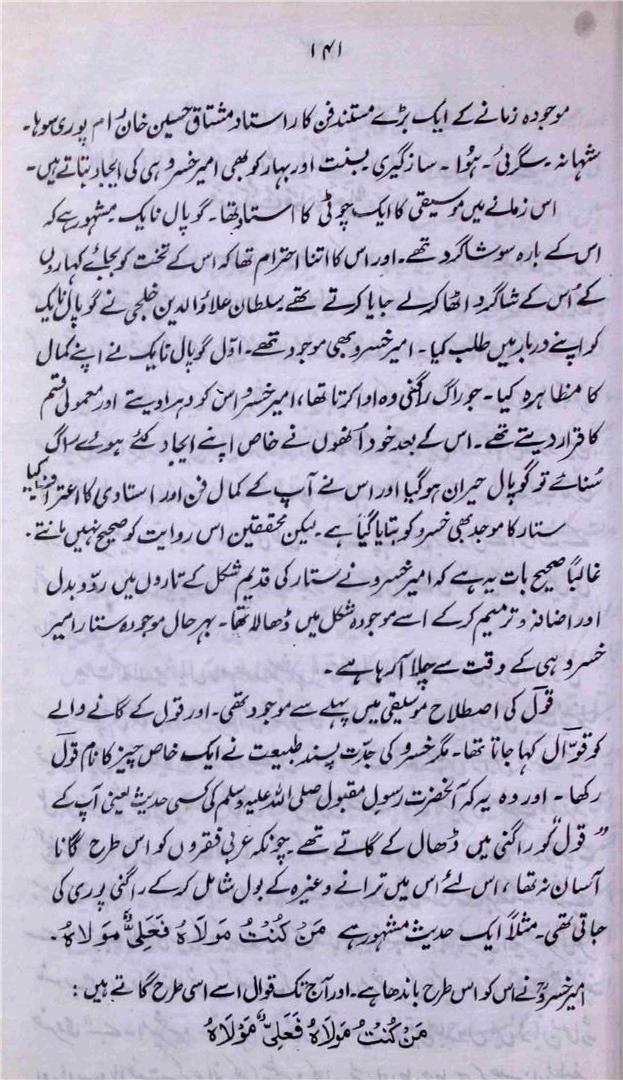 ۱۴۱
موجودہ زمانے کے ایک بڑے مستند فن کار استاد مشتاق حسین خاں رام پوری سوہا۔
شہانہ۔ سگرئی۔ ہنوا۔ سازگیری۔ بسنت اور بہار کو بھی امیر خسرو ہی کی ایجاد بتاتے ہیں۔
اس زمانے میں موسیقی کا ایک چوٹی کا استاد تھا۔ گوپال نایک۔ مشہور ہے کہ
اس کے بارہ سو شاگرد تھے۔ اور اس کا اتنا احترام تھا کہ اس کے تخت کو بجائے کہاروں
کے اُس کے شاگرد اٹھا کر لے جایا کرتے تھے۔ سلطان علاؤالدین خلجی نے گوپال نایک
کو اپنے دربار میں طلب کیا۔ امیر خسرو بھی موجود تھے۔ اوّل گوپال نایک نے اپنے کمال
کا مظاہرہ کیا۔ جو راگ راگنی وہ ادا کرتا تھا، امیر خسرو اس کو دہرا دیتے اور معمولی قسم
کا قرار دیتے تھے۔ اس کے بعد خود انھوں نے خاص اپنے ایجاد کئے ہوئے راگ
سُنائے تو گوپال حیران ہو گیا اور اس نے آپ کے کمال فن اور استادی کا اعتراف کیا
ستار کا موجد بھی خسرو کو بتایا گیا ہے۔ لیکن محققین اس روایت کو صحیح نہیں مانتے۔
غالباً صحیح بات یہ ہے کہ امیر خسرو نے ستار کی قدیم شکل کے تاروں میں ردّو بدل
اور اضافہ و ترمیم کر کے اسے موجودہ شکل میں ڈھالا تھا۔ بہر حال موجودہ ستار امیر
خسرو ہی کے وقت سے چلا آ رہا ہے۔
قول کی اصطلاح موسیقی میں پہلے سے موجود تھی۔ اور قول کے گانے والے
کو قوّال کہا جاتا تھا۔ مگر خسرو کی جدّت پسند طبیعت نے ایک خاص چیز کا نام قول
رکھا۔ اور وہ یہ کہ آنحضرت رسول مقبول صلی اللہ علیہ وسلم کی کسی حدیث یعنی آپ کے
”قول“ کو راگنی میں ڈھال کے گاتے تھے۔ چونکہ عربی فقروں کو اس طرح گانا
آسان نہ تھا، اس لئے اس میں ترانے وغیرہ کے بول شامل کر کے راگنی پوری کی
جاتی تھی۔ مثلاً ایک حدیث مشہور ہے مَنْ کُنْتُ مَولَاہُ فَعَلِیٌّ مولاہُ۔
امیر خسروؒ نے اس کو اس طرح باندھا ہے۔ اور آج تک قوال اسے اسی طرح گاتے ہیں:
مَنْ کُنْتُ مَولَاہُ فَعَلِیٌّ مَوْلَاہُ